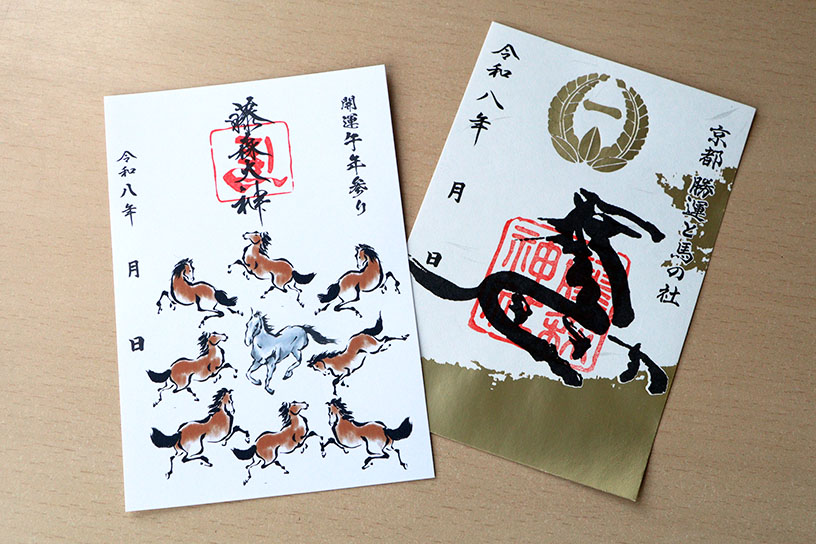 開運午年参り
藤森大神
令和八年 月 日
京都 勝運と馬の社
一
令和八年 月 日
藤森神社